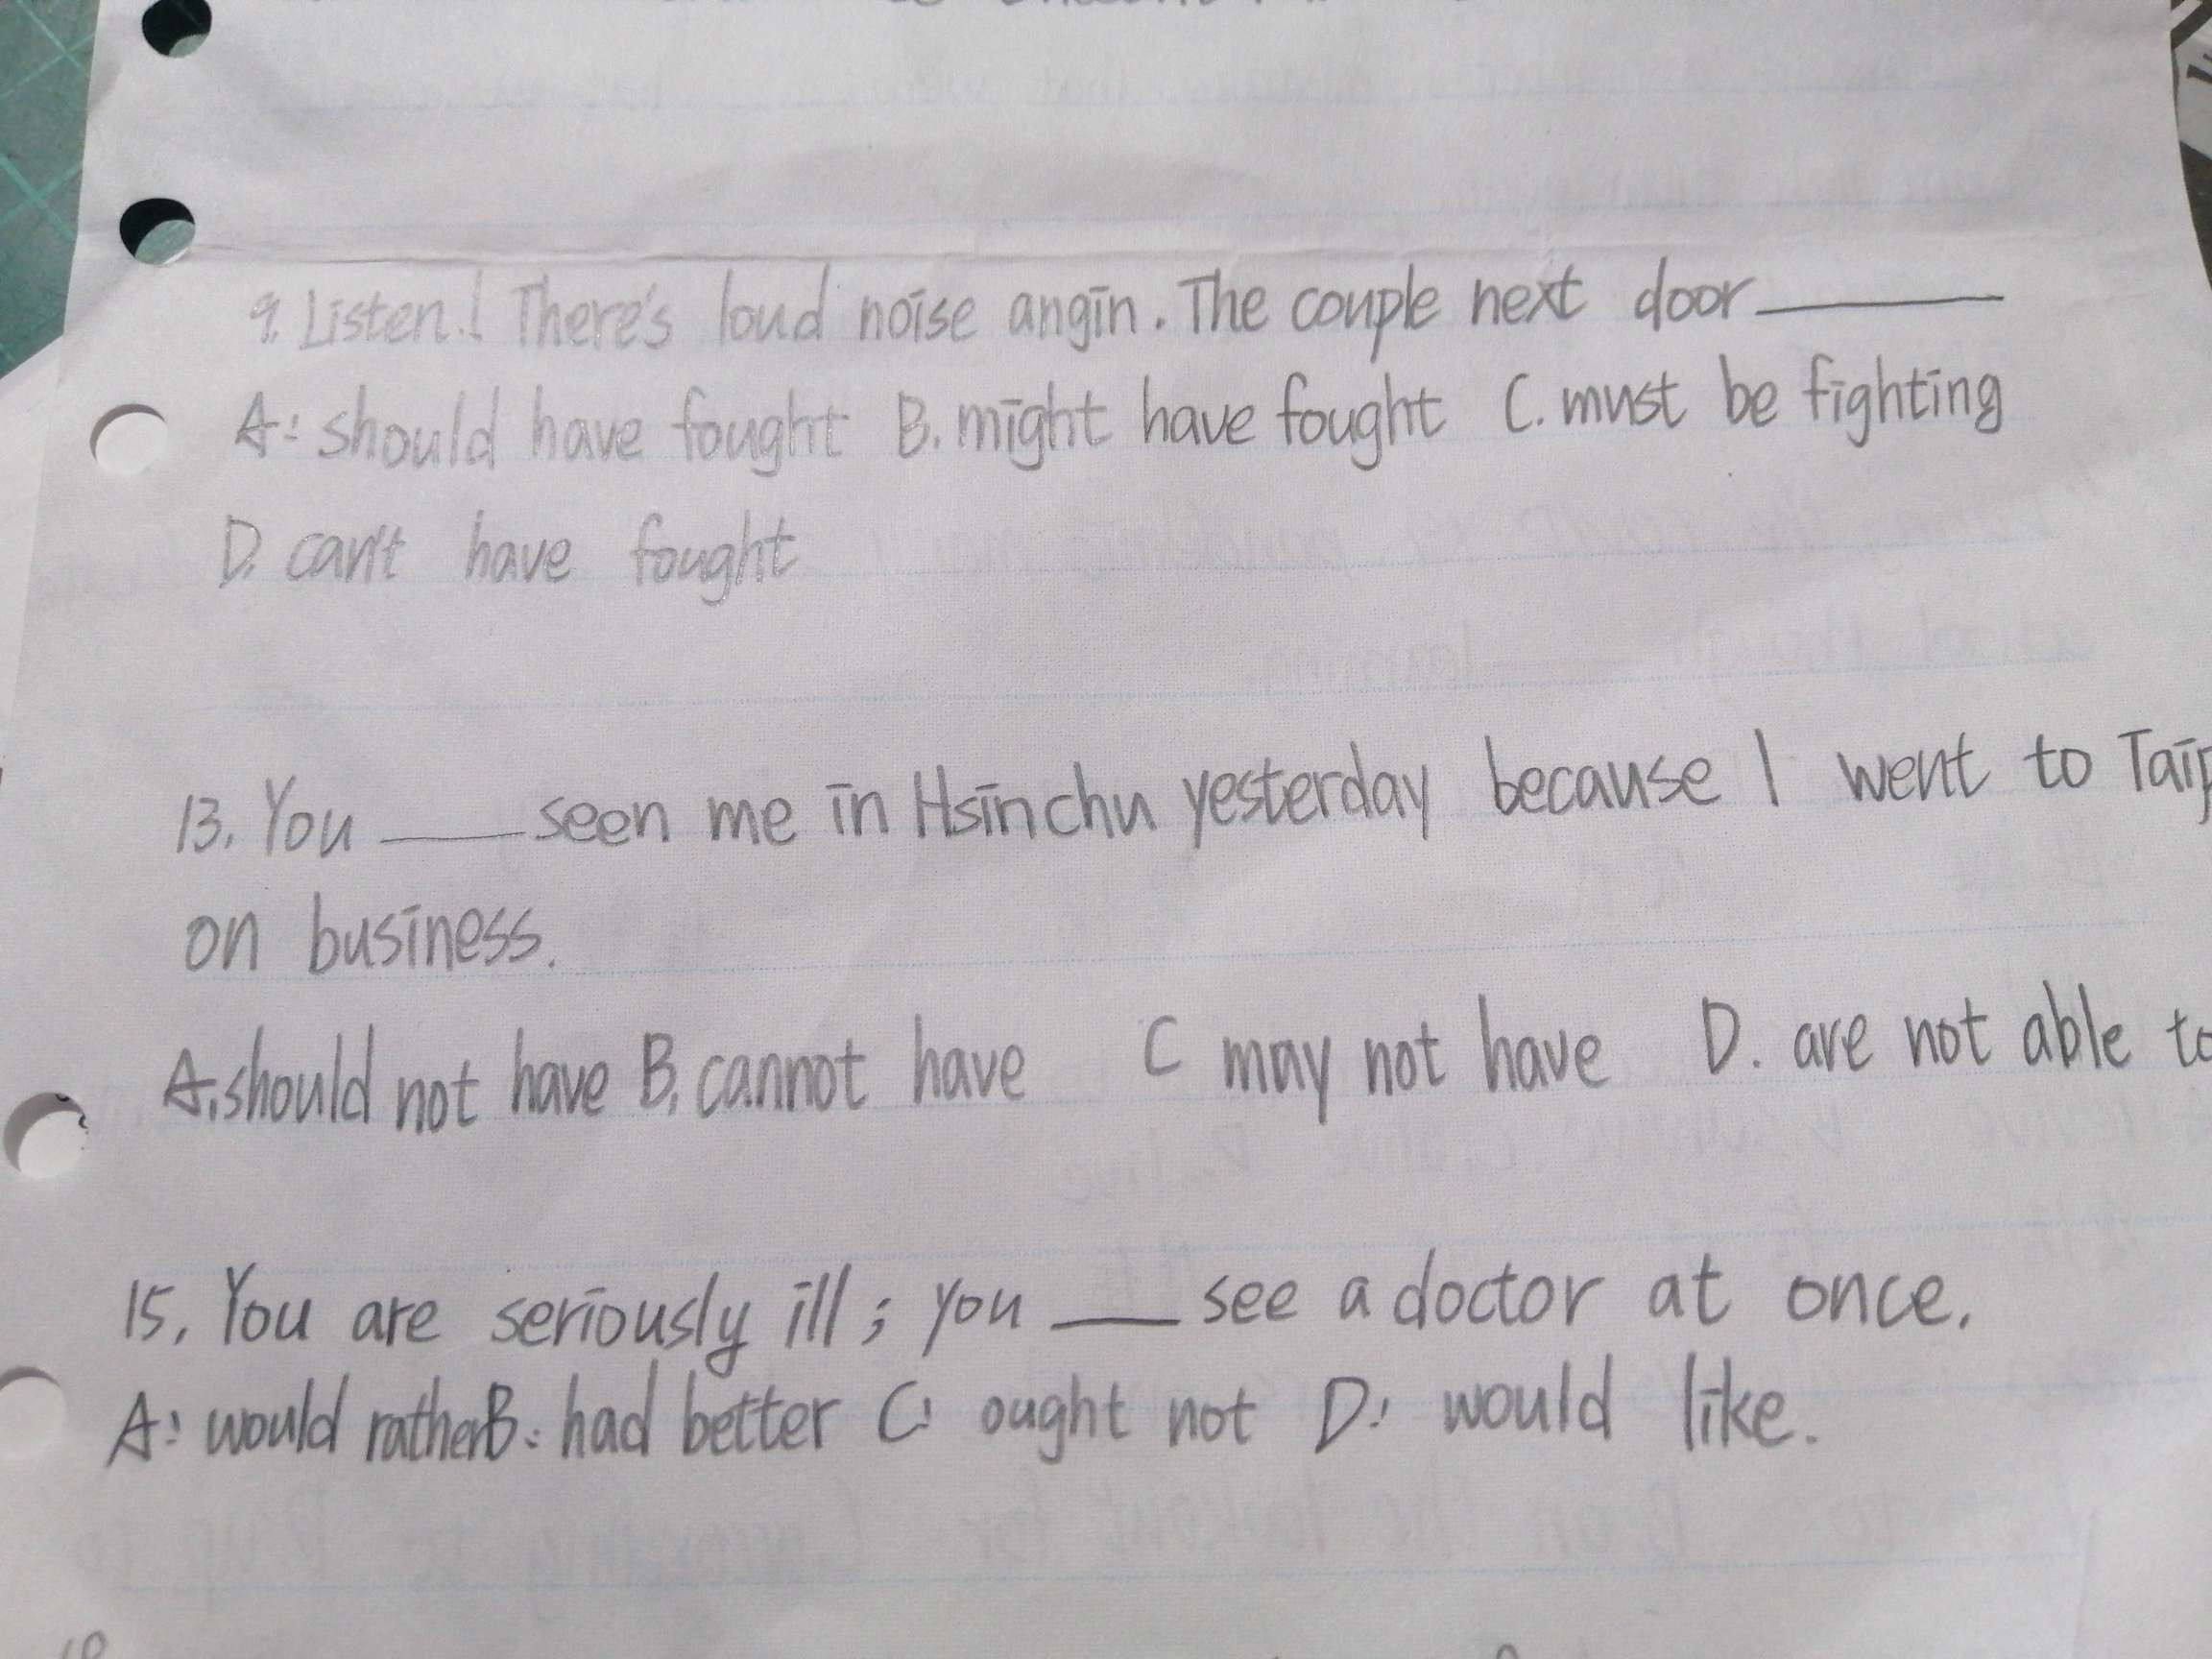 9. Listen! There's loud noise angin. The couple next door______
A: should have fought B. might have fought C. must be fighting
D. can't have fought
13. You ____ seen me in Hsinchu yesterday because I went to
on business.
A. should not have B. cannot have C may not have D. are not able to
15. You are seriously ill; you ____ see a doctor at once.
A: would rather B: had better C: ought not D: would like.